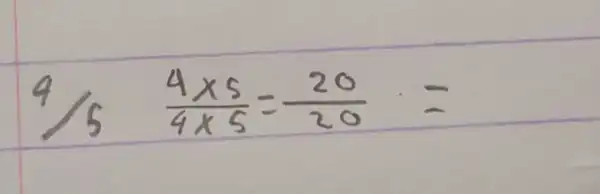 4/5 4×5/4×5 = 20/20 =